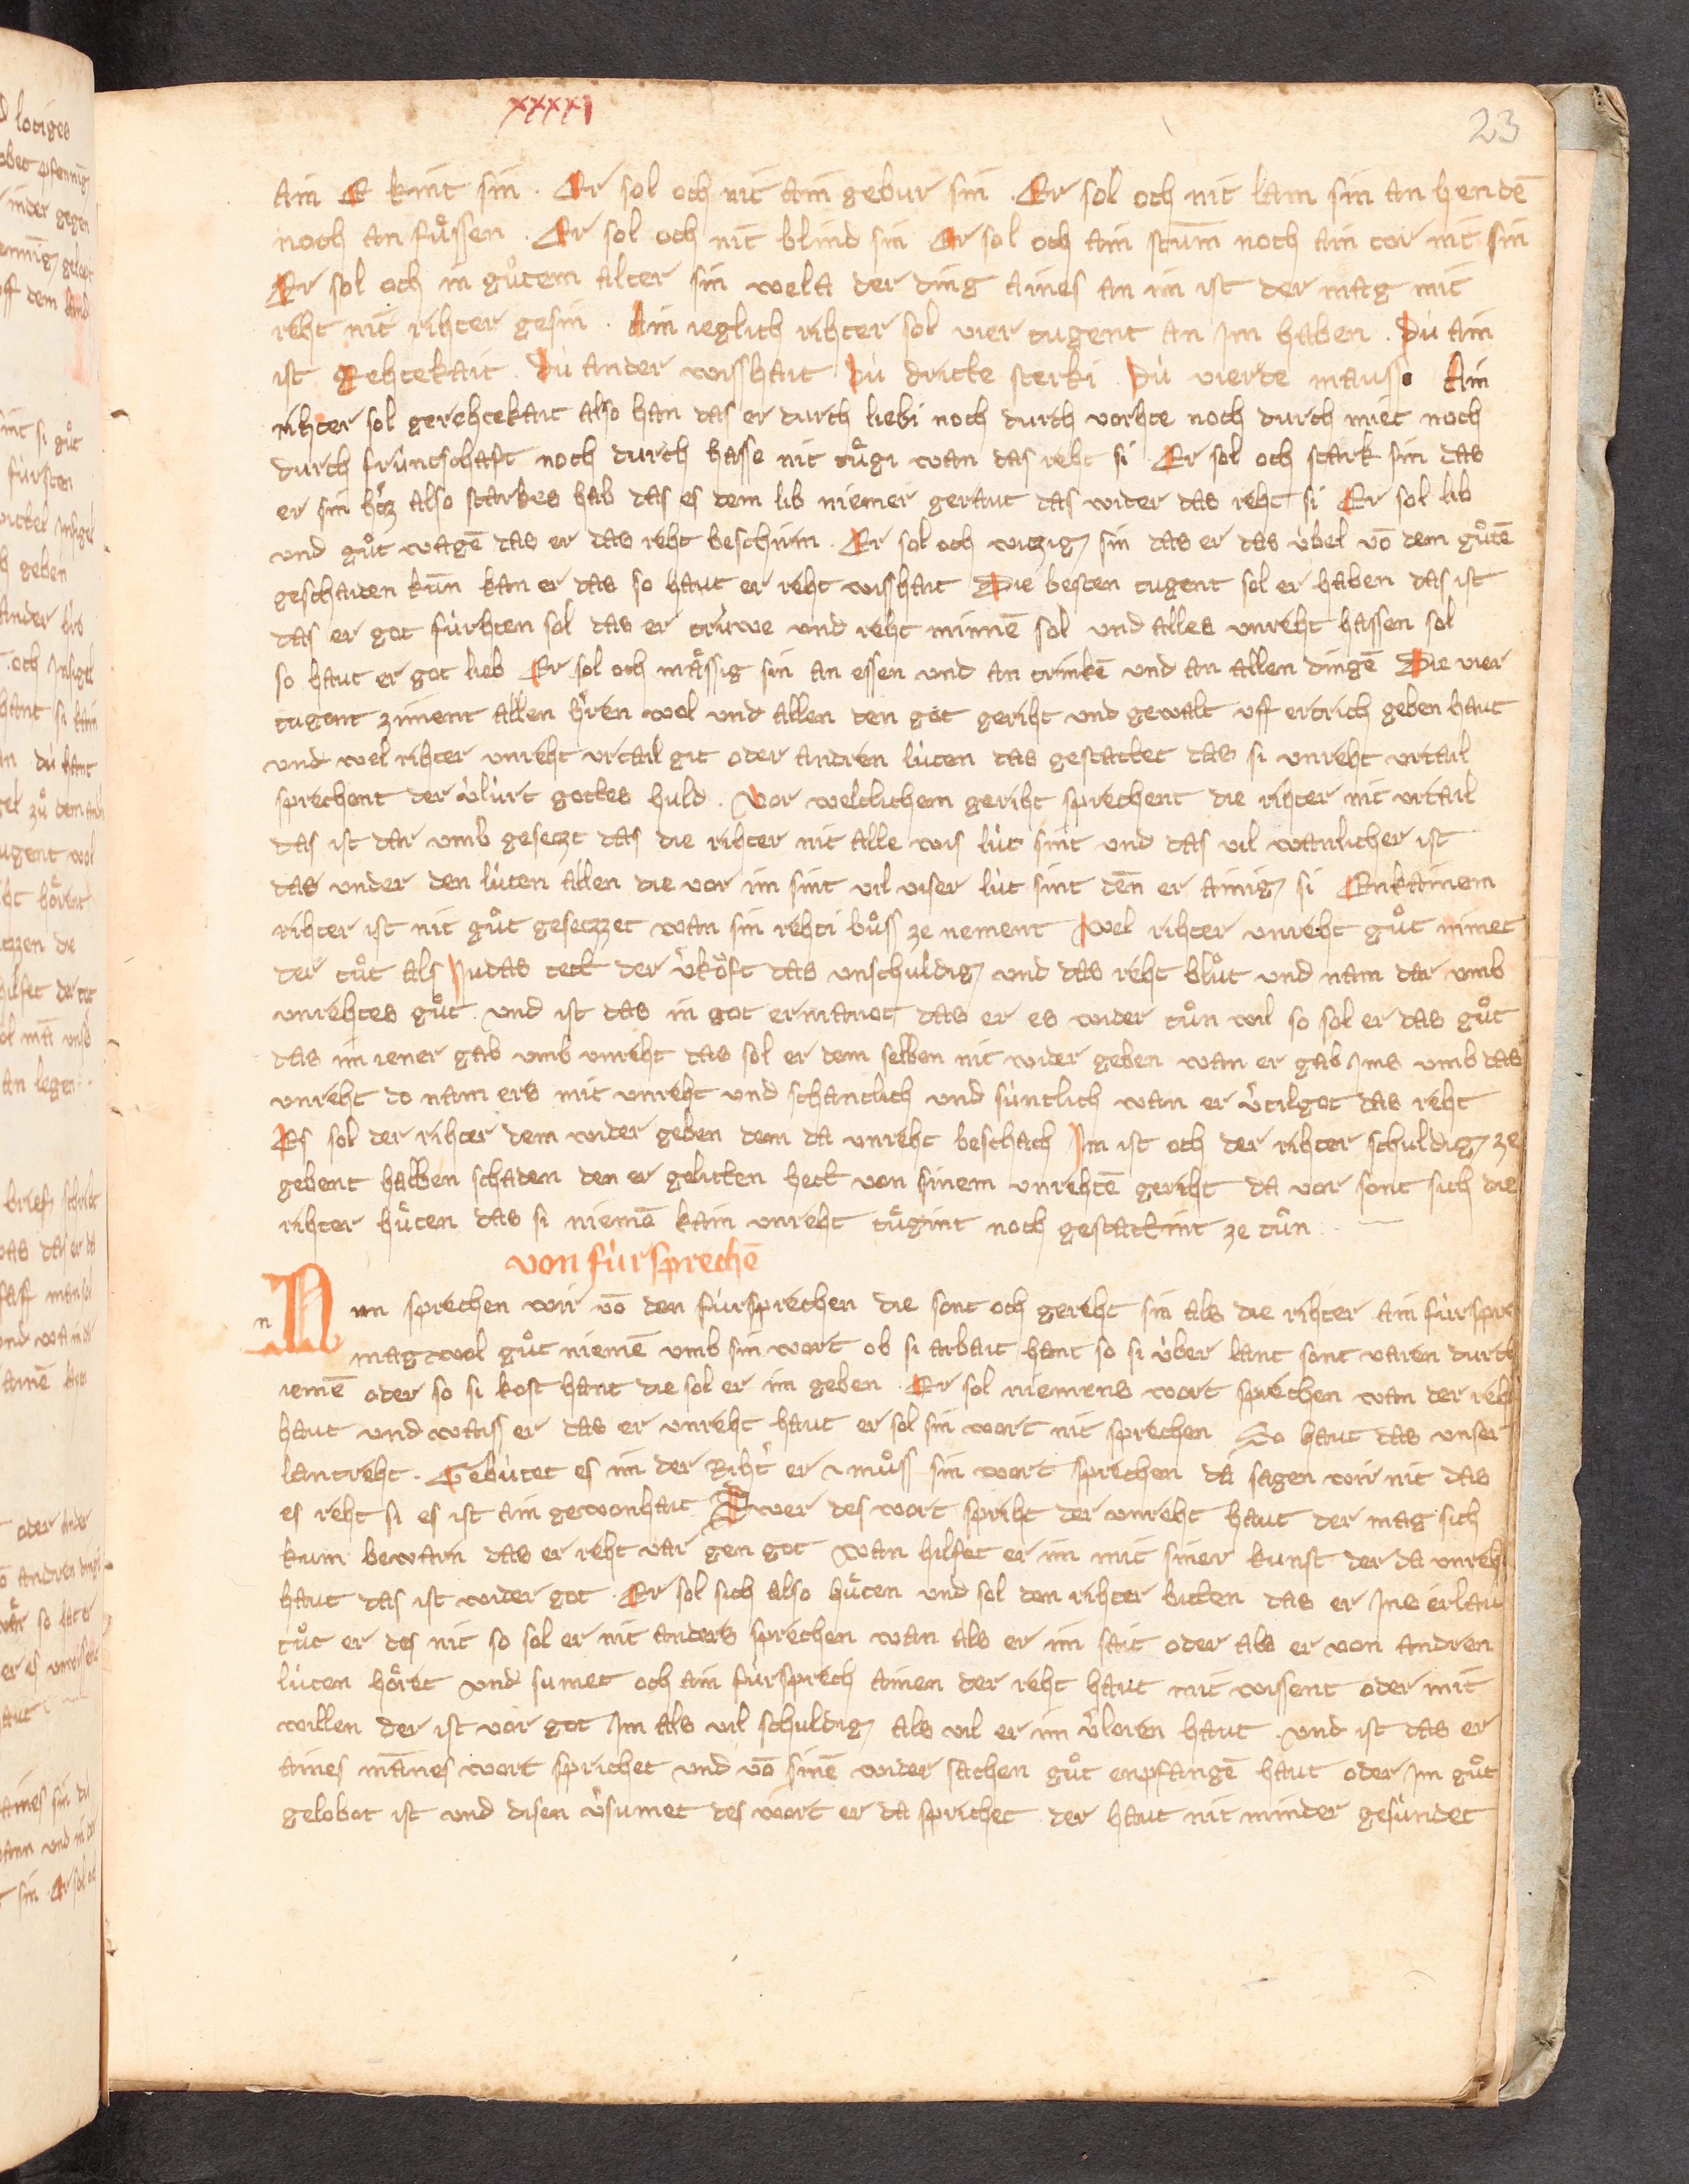 xxxxı
23
ain E kint sin . Er sol och nit ain gebur sin . Er sol och nit lam sin an hendē
noch an fůssen . Er sol och nit blind sin Er sol och ain stum̄ noch ain tor nit sin
Er sol och in gůtem alter sin wela der ding aines an im ist der mag mit
reht nit rihter gesin . Ain ieglich rihter sol vier tugent an Im haben . Dú ain
ist Rehtekait . Dú ander wisshait Dú dritte sterki Dú vierte mausse Ain
rihter sol gerehtekait also han das er durch liebi noch durch vorhte noch durch miet noch
durch frúntschaft noch durch hasse nit tůgi wan das reht si Er sol och stark sin das
er sin htz also starkes hab das es dem lib niemer geraut das wider das reht si Er sol lib
und gůt wagē das er das reht beschirm . Er sol och witzig sin das er das úbel vō dem gůtē
geschaiden kun̄ kan er das so haut er reht wisshait Die besten tugent sol er haben das ist
das er got fúrhten sol das er trúwe und reht minnē sol und alles unreht hassen sol
so haut er got lieb Er sol och mässig sin an essen und an trinkē und an allen dingē Die vier
tugent ziment allen h'ren wol und allen den got geriht und gewalt uff ertrich geben haut
und wel rihter unreht urtail git oder andren lúten das gestattet das si unreht urtail
sprechent der v'lúrt gottes huld . Vor weltlichem geriht sprechent die rihter nit urtail
das ist dar umb gesetzt das die rihter nit alle wis lút sint und das vil wainlicher ist
das under den lúten allen die vor im sint vil wiser lút sint den̄ er ainig si Enkainem
rihter ist nit gůt gesetzzet wan sin rehti bůss ze nement Wel rihter unreht gůt nimet
der tůt als Judas tett der v'kőft das unschuldig und das reht blůt und nam dar umb
unrehtes gůt . und ist das in got ermanot das er es wider tůn wil so sol er das gůt
das im iener gab umb unreht das sol er dem selben nit wider geben wan er gab Ims umb das
unreht do nam ers mit unreht und schantlich und súntlich wan er v'tilgot das reht
Es sol der rihter dem wider geben dem da unreht beschach Im ist och der rihter schuldig ze
gebent halben schaden den er gelitten hett von sinem unrehtē geriht da vor sont sich die
rihter hůten das si niemā kain unreht tůgint noch gestattint ze tůn
von fúrsprechē
n
Nun sprechen wir vō den fúrsprechen die sont och gereht sin als die rihter ain fúrspre
mag wol gůt niemē umb sin wort ob si arbait hant so si úber lant sont varen durch
iemē oder so si kost hant die sol er im geben . Er sol niemens wort sprechen wan der reht
haut und waiss er das er unreht haut er sol sin wort nit sprechen So haut das unser
lantreht . Gebútet es im der Riht' er můss sin wort sprechen da sagen wir nit das
es reht si es ist ain gewonhait Swer des wort spriht der unreht haut der mag sich
kum bewarn das er reht var gen got wan hilfet er im mit siner kunst der da unreht
haut das ist wider got . Er sol sich also hůten und sol den rihter bitten das er Ims erlau
tůt er des nit so sol er nit anders sprechen wan als er im sait oder als er von andren
lúten hőret und sumet och ain fúrsprech ainen der reht haut mit wissent oder mit
willen der ist vor got Im als vil schuldig als vil er im v'loren haut . und ist das er
aines mānes wort sprichet und vō sinē wider sachen gůt enpfangē haut oder Im gůt
gelobot ist und disen v'sumet des wort er da sprichet der haut nit minder gesúndet